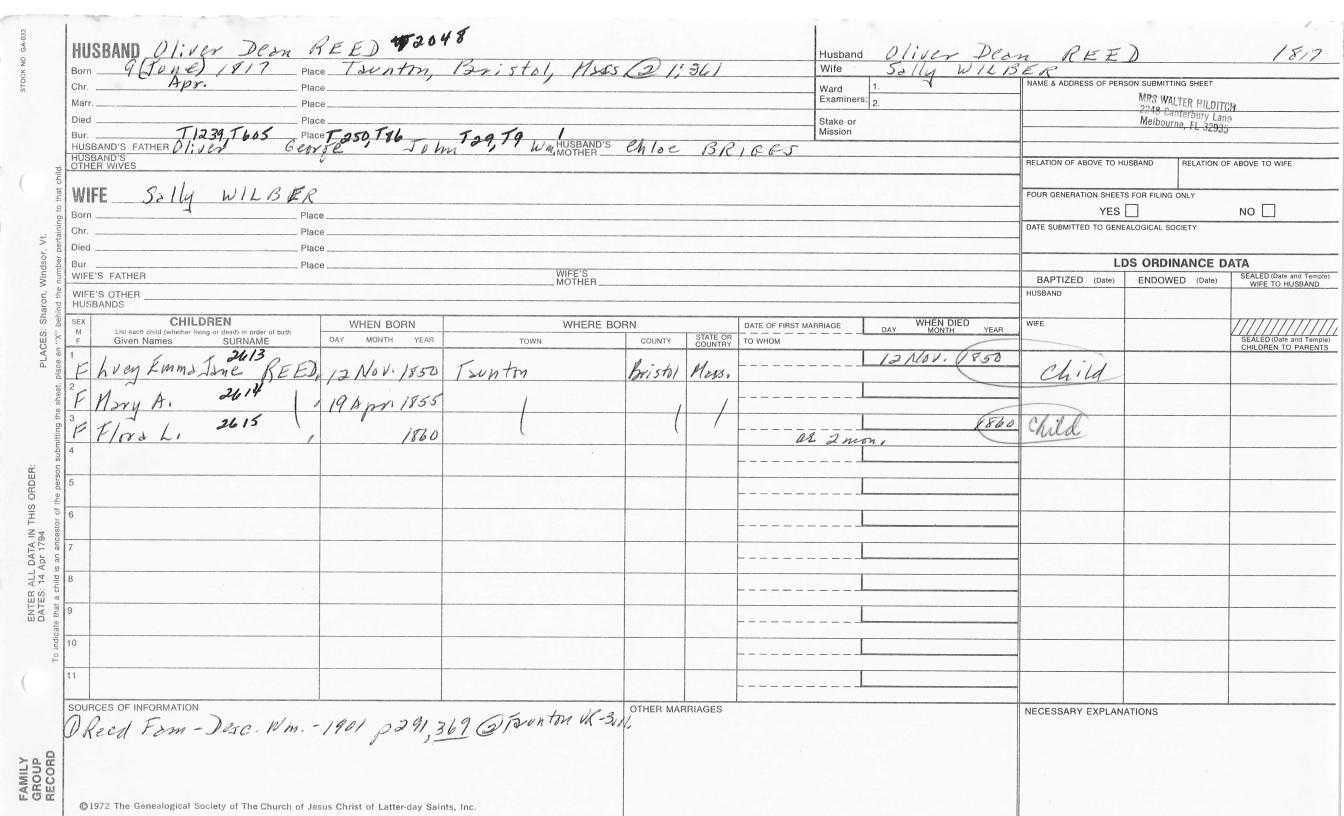 STOCK NO. GA-033
HUSBAND Oliver Dean REED T2048
Born 9 (June) 1817 Place Taunton, Bristol, Mass ② 1:361
Chr. Apr. Place
Marr. Place
Died Place
Bur. T1239, T605 Place T250, T86 T29, T9 1
HUSBAND'S FATHER Oliver George John Wm. HUSBAND'S MOTHER Chloe BRIGGS
HUSBAND'S OTHER WIVES
WIFE Sally WILBER
Born Place
Chr. Place
Died Place
Bur. Place
WIFE'S FATHER WIFE'S MOTHER
WIFE'S OTHER HUSBANDS
Husband Oliver Dean REED 1817
Wife Sally WILBER
Ward Examiners: 1.
2.
Stake or Mission
NAME & ADDRESS OF PERSON SUBMITTING SHEET
MRS WALTER HILDITCH
2248 Canterbury Lane
Melbourne, FL 32935
RELATION OF ABOVE TO HUSBAND RELATION OF ABOVE TO WIFE
FOUR GENERATION SHEETS FOR FILING ONLY
YES NO
DATE SUBMITTED TO GENEALOGICAL SOCIETY
LDS ORDINANCE DATA
BAPTIZED (Date) ENDOWED (Date) SEALED (Date and Temple) WIFE TO HUSBAND
HUSBAND
WIFE
SEALED (Date and Temple) CHILDREN TO PARENTS
SEX M F CHILDREN List each child (whether living or dead) in order of birth Given Names SURNAME WHEN BORN DAY MONTH YEAR WHERE BORN TOWN COUNTY STATE OR COUNTRY DATE OF FIRST MARRIAGE TO WHOM WHEN DIED DAY MONTH YEAR
1 F Emma Jane REED 2613 12 Nov. 1850 Taunton Bristol Mass. 12 Nov. 1850 Child
2 F Mary A. 2614 19 Apr 1855
3 F Flora L. 2615 1860 ae 2 mon. 1860 Child
4
5
6
7
8
9
10
11
SOURCES OF INFORMATION
① Reed Fam - Desc. Wm. - 1901 p291, 369 ② Taunton VR-
OTHER MARRIAGES
NECESSARY EXPLANATIONS
©1972 The Genealogical Society of The Church of Jesus Christ of Latter-day Saints, Inc.
FAMILY GROUP RECORD
ENTER ALL DATA IN THIS ORDER:
DATES: 14 Apr 1794 PLACES: Sharon, Windsor, Vt.
To indicate that a child is an ancestor of the person submitting the sheet, place an "X" behind the number pertaining to that child.